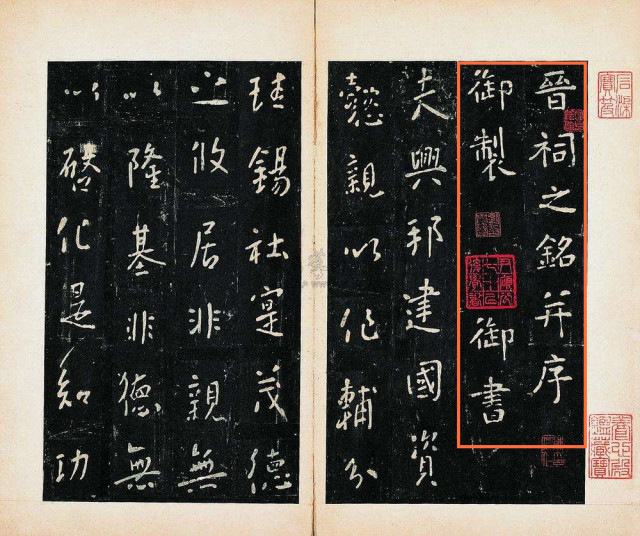 晉祠之銘并序
御製 御書
夫興邦建國資
懿親以作輔分
珪錫社寔茂德
之攸居非親無
以隆基非德無
以啓化是知功
石渠寶笈
養心殿鑑藏寶